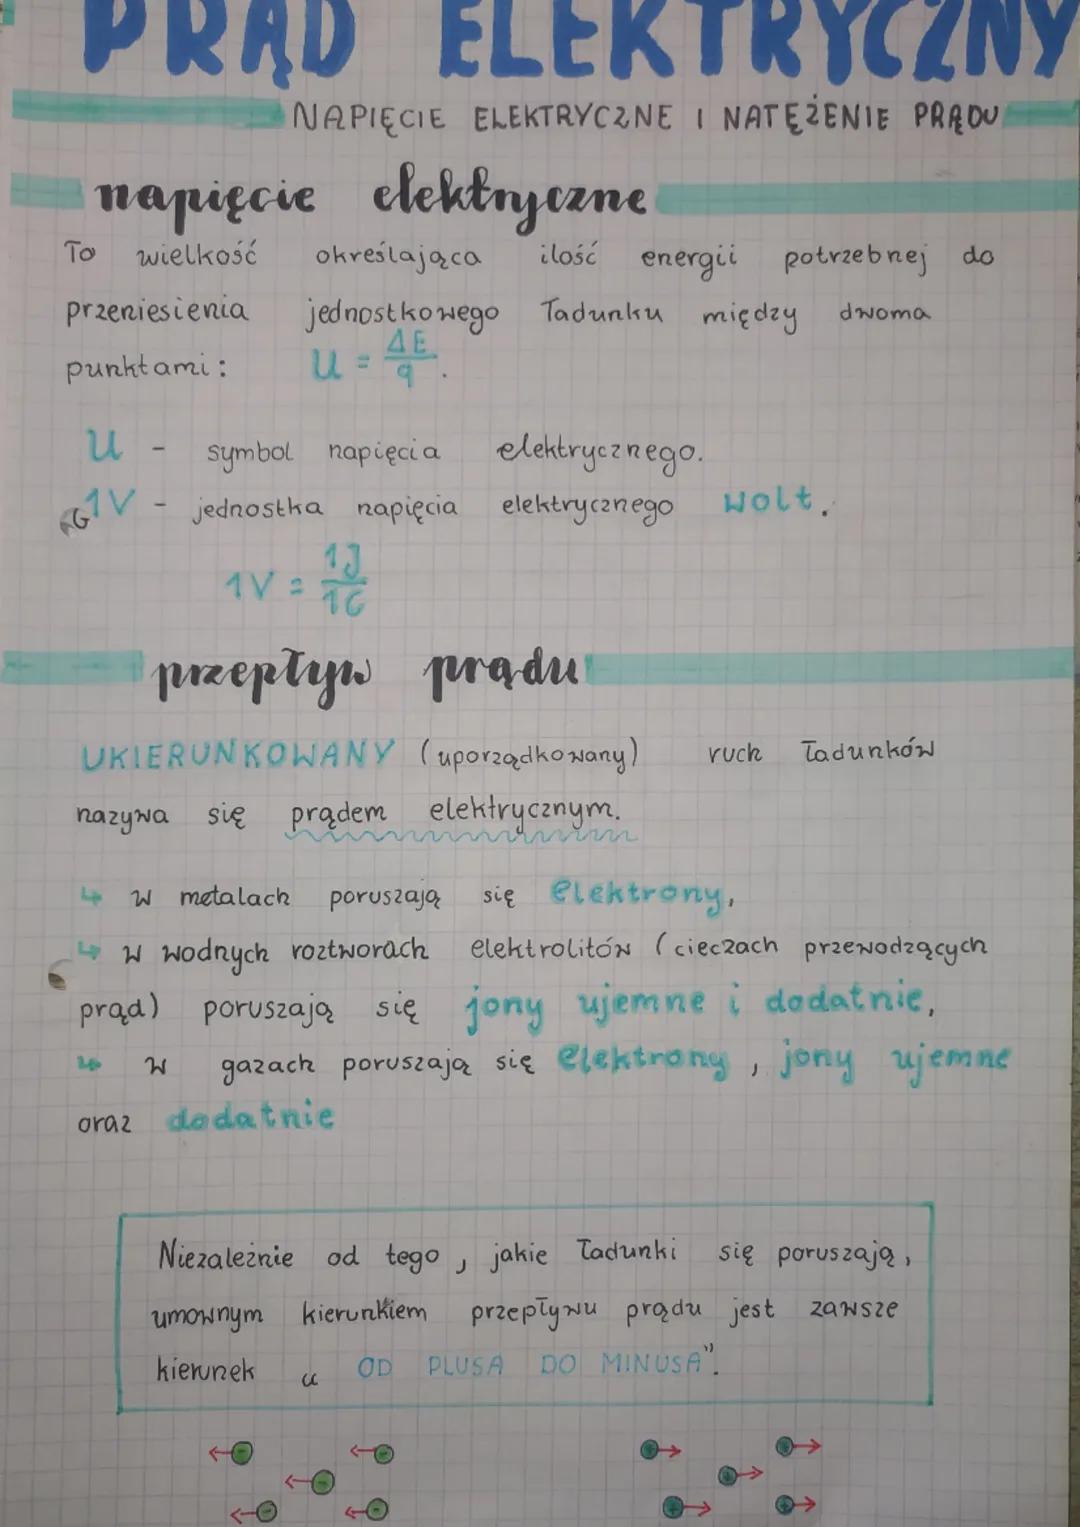 PRĄD ELEKTRYCZNY
NAPIĘCIE ELEKTRYCZNE I NATĘŻENIE PRĄDU
napięcie elektryczne
To wielkość określająca ilość energii potrzebnej do
przeniesienia jednostkowego ładunku między dwoma
punktami: U = ΔE/q.
U - symbol napięcia elektrycznego.
1V - jednostka napięcia elektrycznego wolt.
1V = 1J/1C
przepływ prądu
UKIERUNKOWANY (uporządkowany) ruch ładunków
nazywa się prądem elektrycznym.
↳ w metalach poruszają się elektrony,
↳ w wodnych roztworach elektrolitów (cieczach przewodzących
prąd) poruszają się jony ujemne i dodatnie,
↳ w gazach poruszają się elektrony, jony ujemne
oraz dodatnie
Niezależnie od tego, jakie ładunki się poruszają,
umownym kierunkiem przepływu prądu jest zawsze
kierunek „OD PLUSA DO MINUSA”.